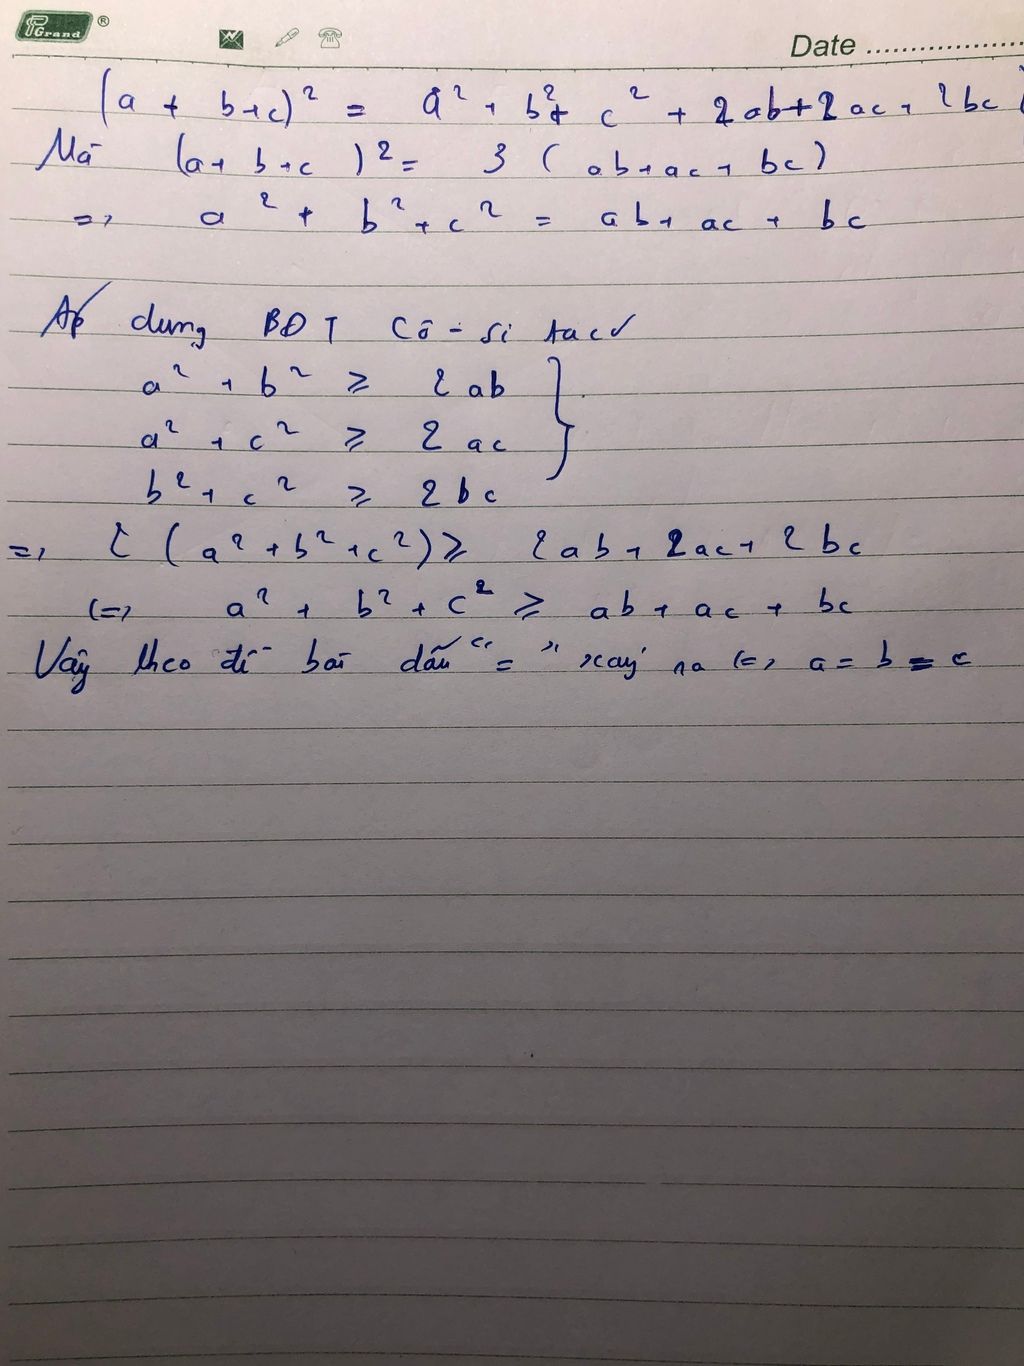 Grand ®
Date ....................
(a + b+c)² = a² + b² + c² + 2ab+2ac+2bc
Mà (a+b+c)² = 3(ab+ac+bc)
=> a² + b² + c² = ab+ac+bc
Áp dụng BĐT Cô-si ta có
a² + b² ≥ 2ab }
a² + c² ≥ 2ac
b² + c² ≥ 2bc
=> 2(a²+b²+c²) ≥ 2ab+2ac+2bc
<=> a² + b² + c² ≥ ab+ac+bc
Vậy theo đề bài dấu "=" xảy ra <=> a=b=c